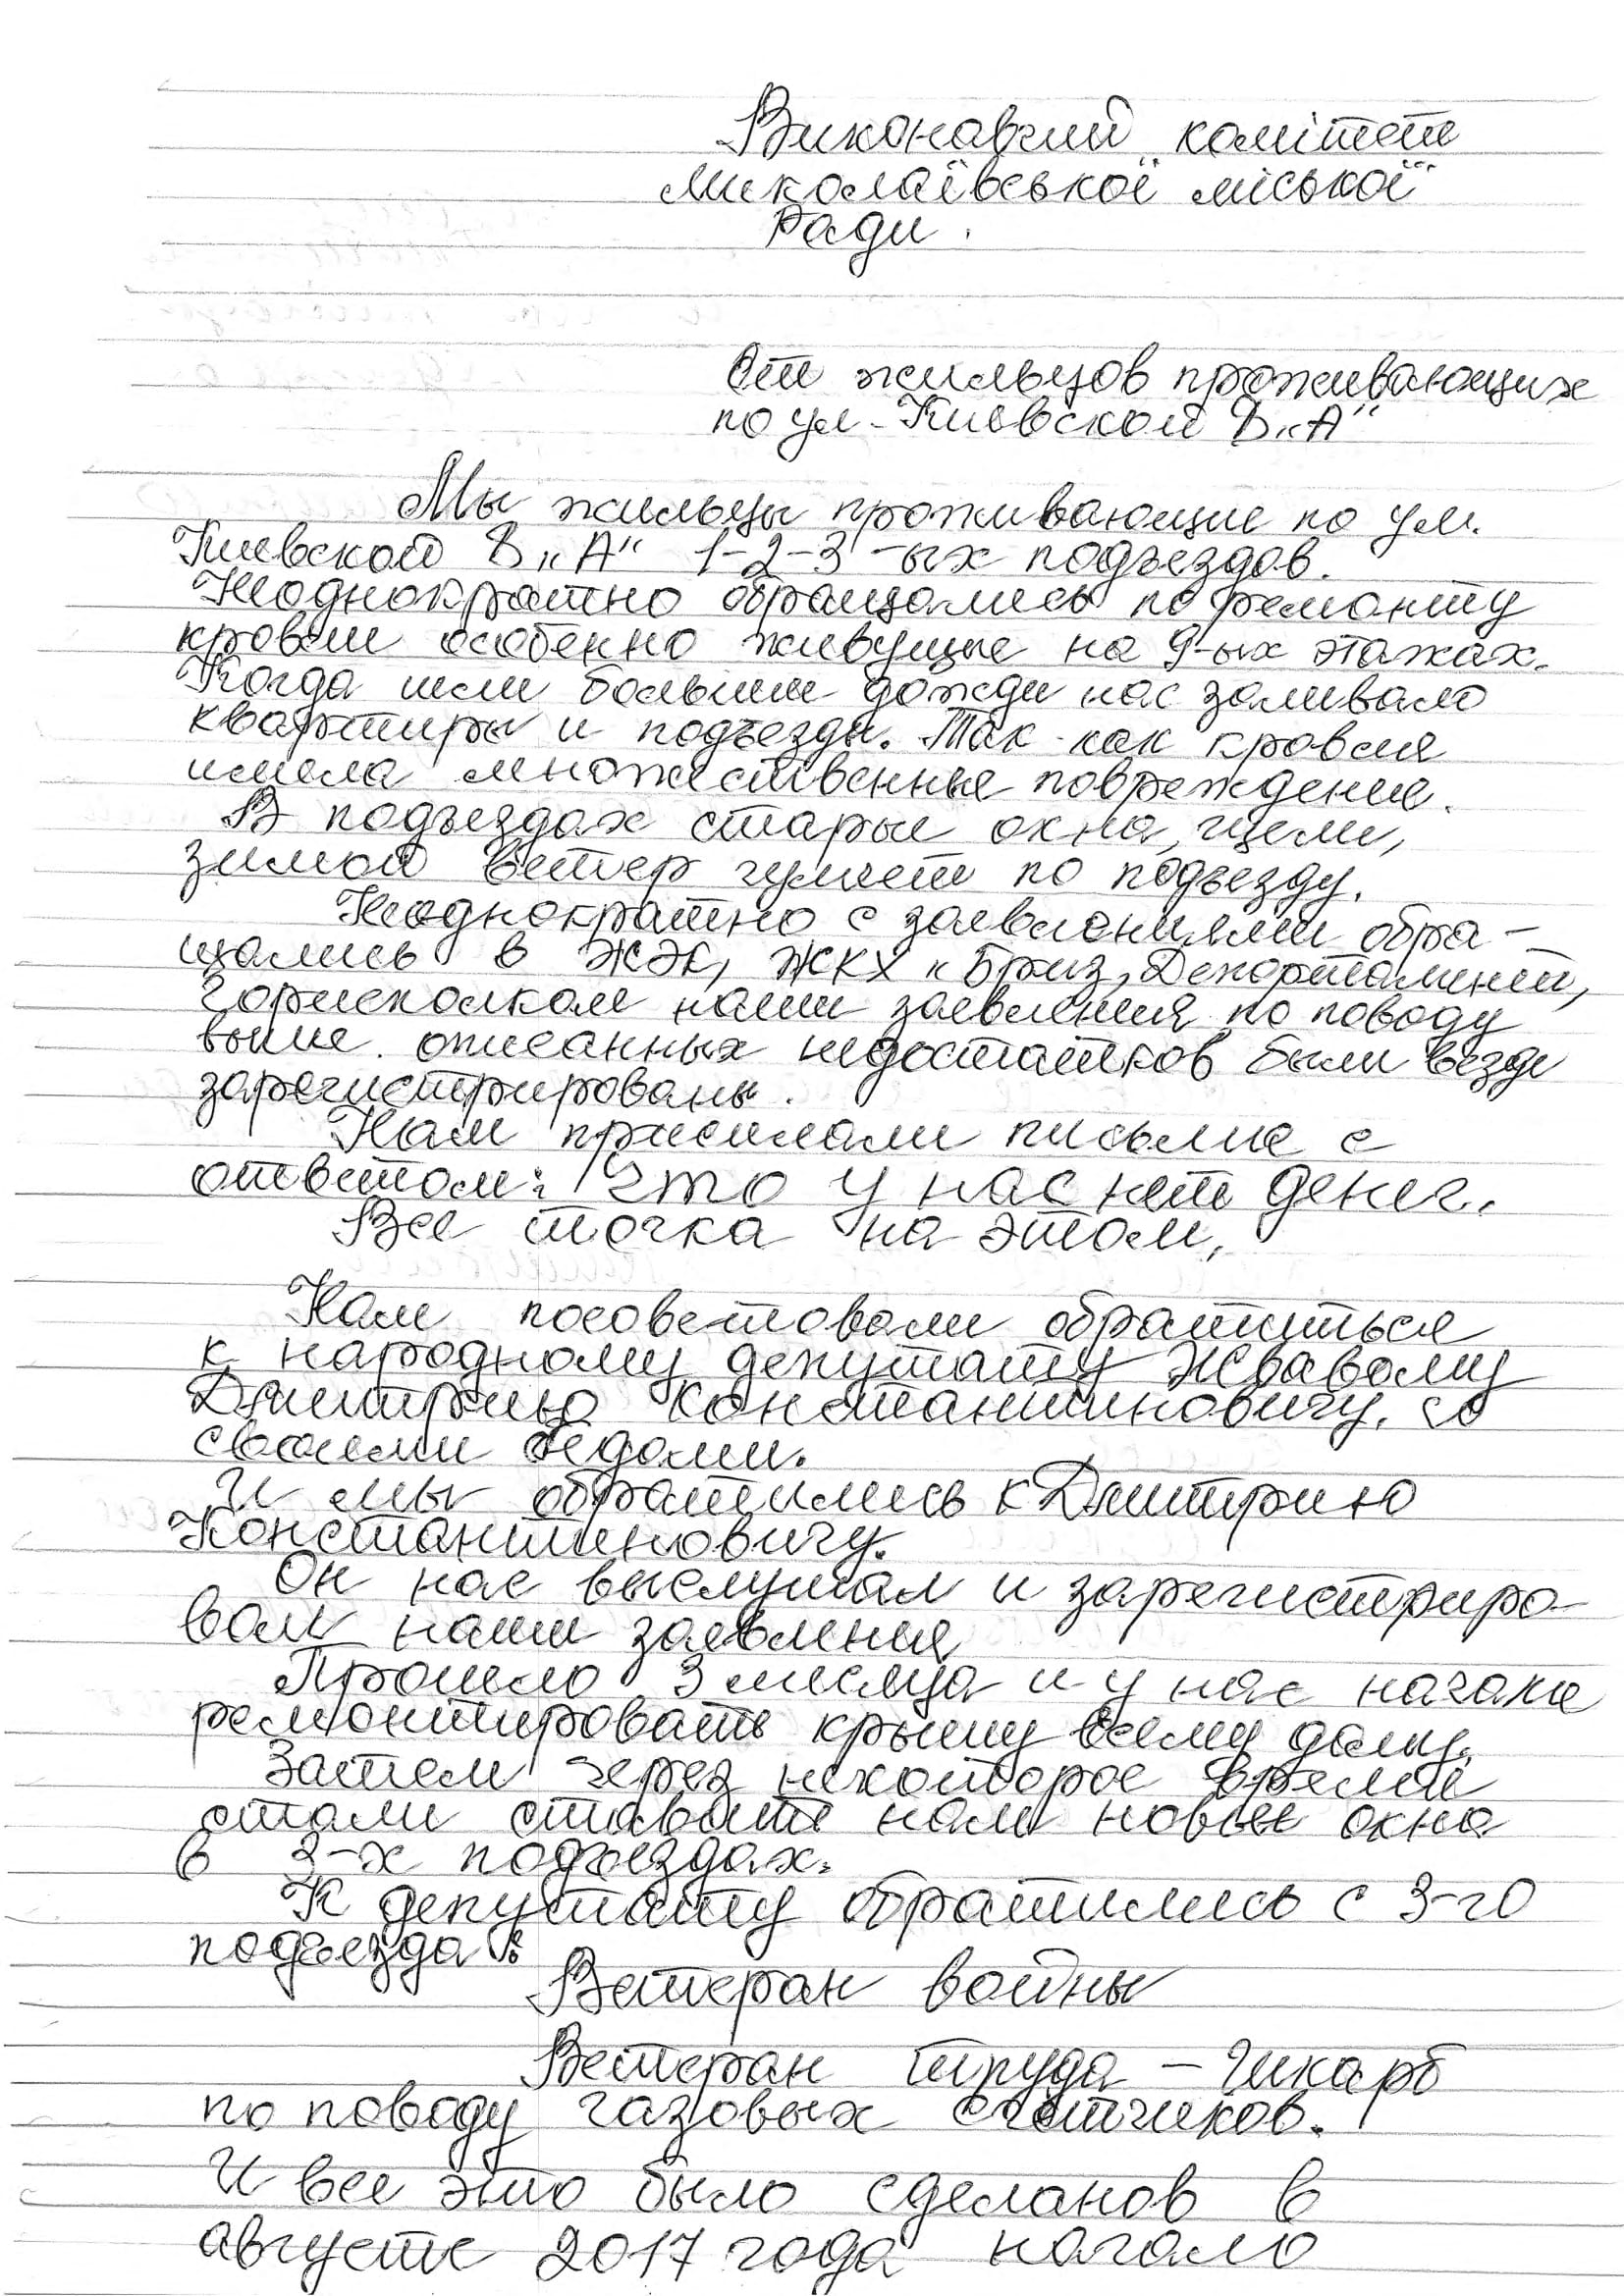 Виконавчий комітет
Миколаївської міської
Ради.
От жильцов проживающих
по ул. Киевской 8„А“
Мы жильцы проживающие по ул.
Киевской 8„А“ 1-2-3-ых подъездов.
Неоднократно обращались по ремонту
кровли особенно живущие на 9-ых этажах.
Когда шли большие дожди нас заливало
квартиры и подъезды. Так как кровля
имела множественные повреждения.
В подъездах старые окна, щели,
зимой ветер гуляет по подъезду.
Неоднократно с заявлениями обра-
щались в ЖЭК, ЖКХ „Бриз, Департамент,
Горисполком наши заявления по поводу
выше описанных недостатков были везде
зарегистрированы.
Нам присылали письма с
ответом: Что у нас нет денег.
Все точка на этом,
Нам посоветовали обратиться
к народному депутату Жвавому
Дмитрию Константиновичу. со
своими бедами.
И мы обратились к Дмитрию
Константиновичу.
Он нас выслушал и зарегистриро-
вал наши заявления
Прошло 3 месяца и у нас начали
ремонтировать крышу всему дому.
Затем через некоторое время
стали ставить нам новые окна
в 3-х подъездах.
К депутату обратились с 3-го
подъезда:
Ветеран войны
Ветеран труда –
по поводу газовых счетчиков.
И все это было сделанов в
августе 2017 года начало